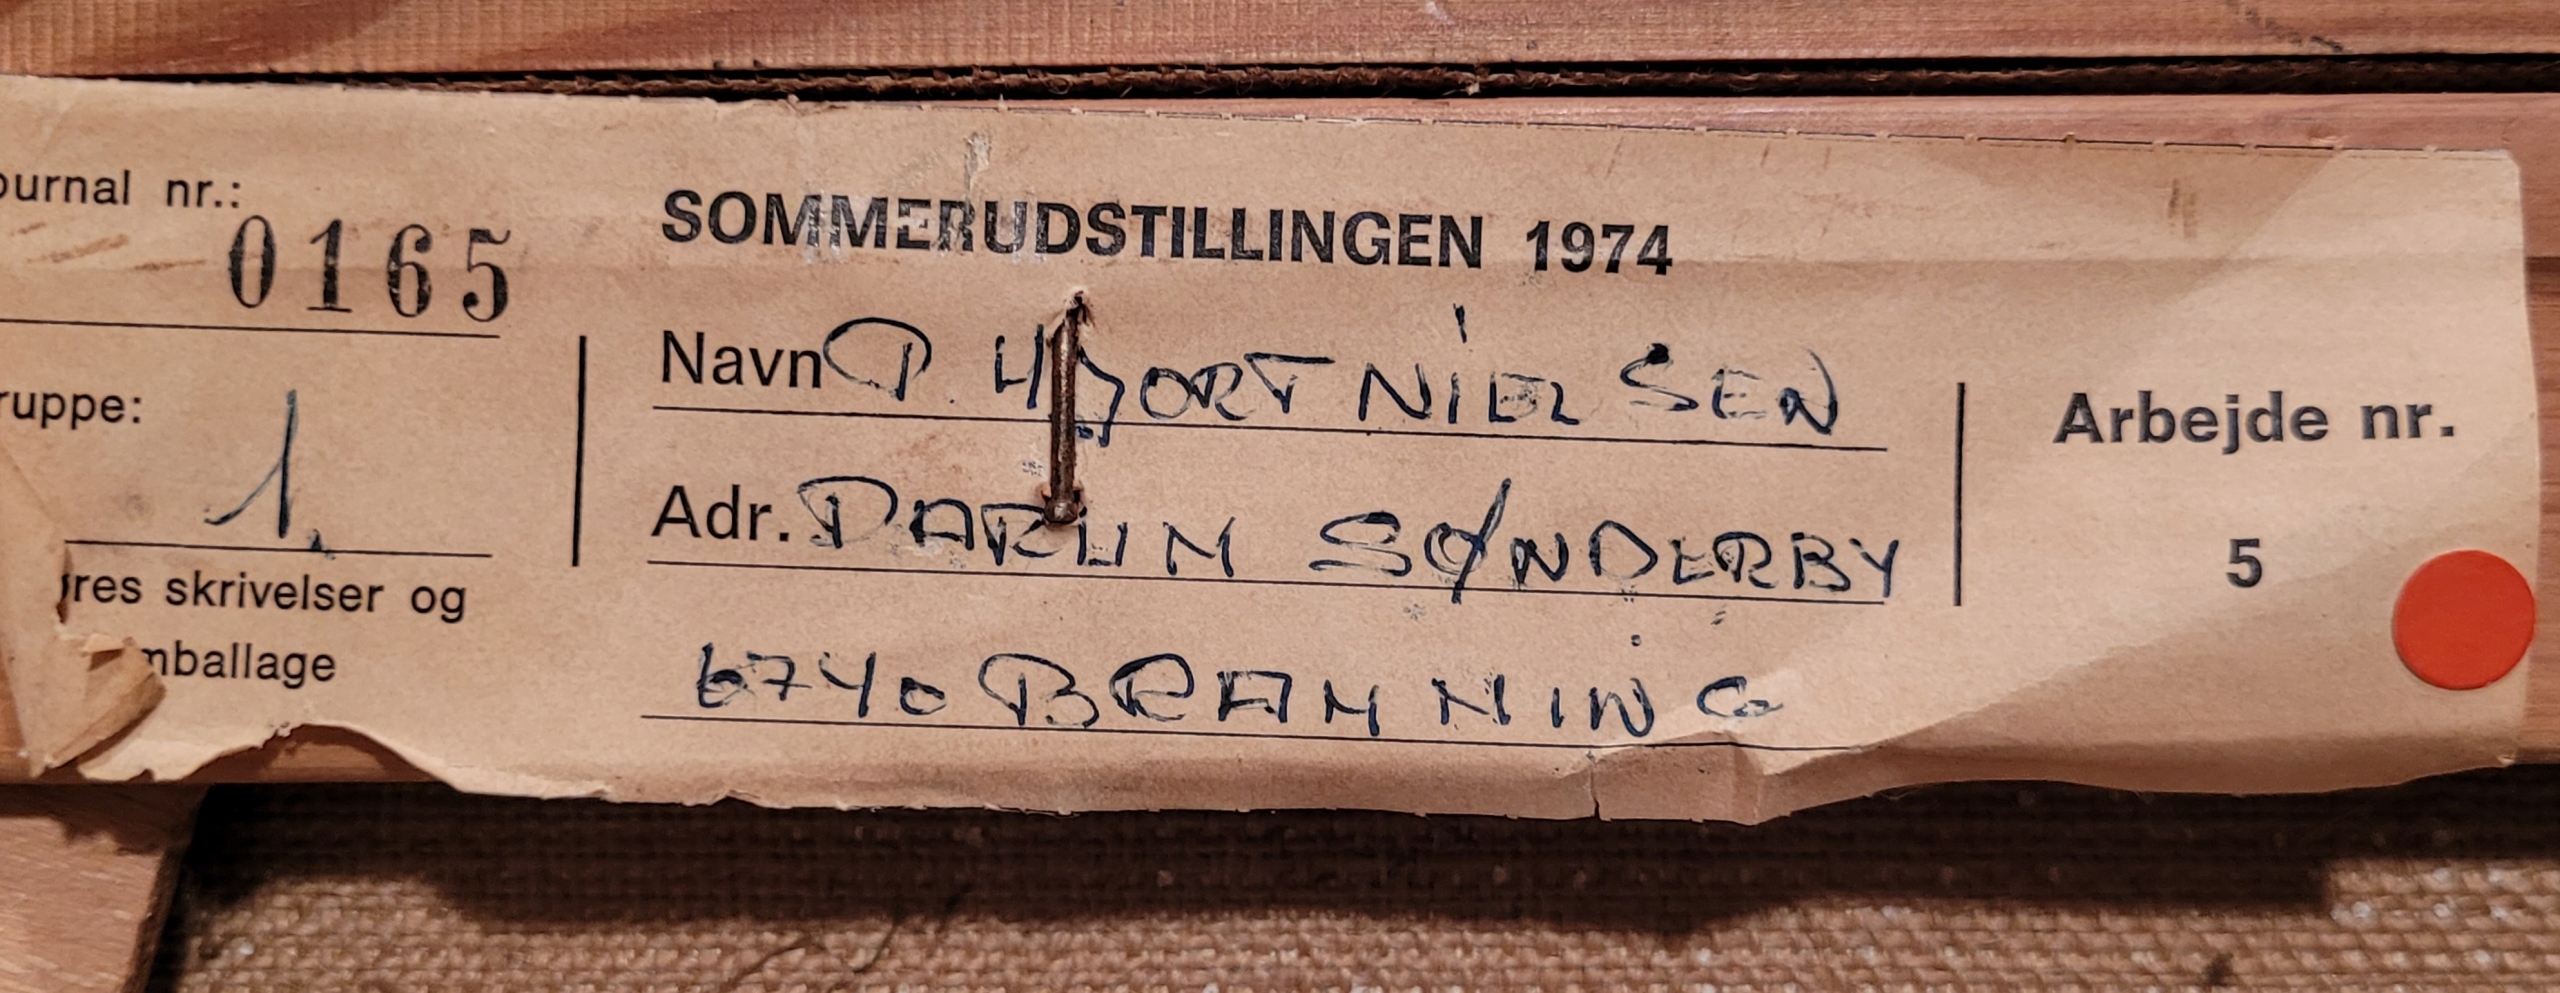 ournal nr.:
0165
ruppe:
1.
res skrivelser og
mballage
SOMMERUDSTILLINGEN 1974
Navn P. HJORT NIELSEN
Adr. DARUM SØNDERBY
6740 BRAMMING
Arbejde nr.
5